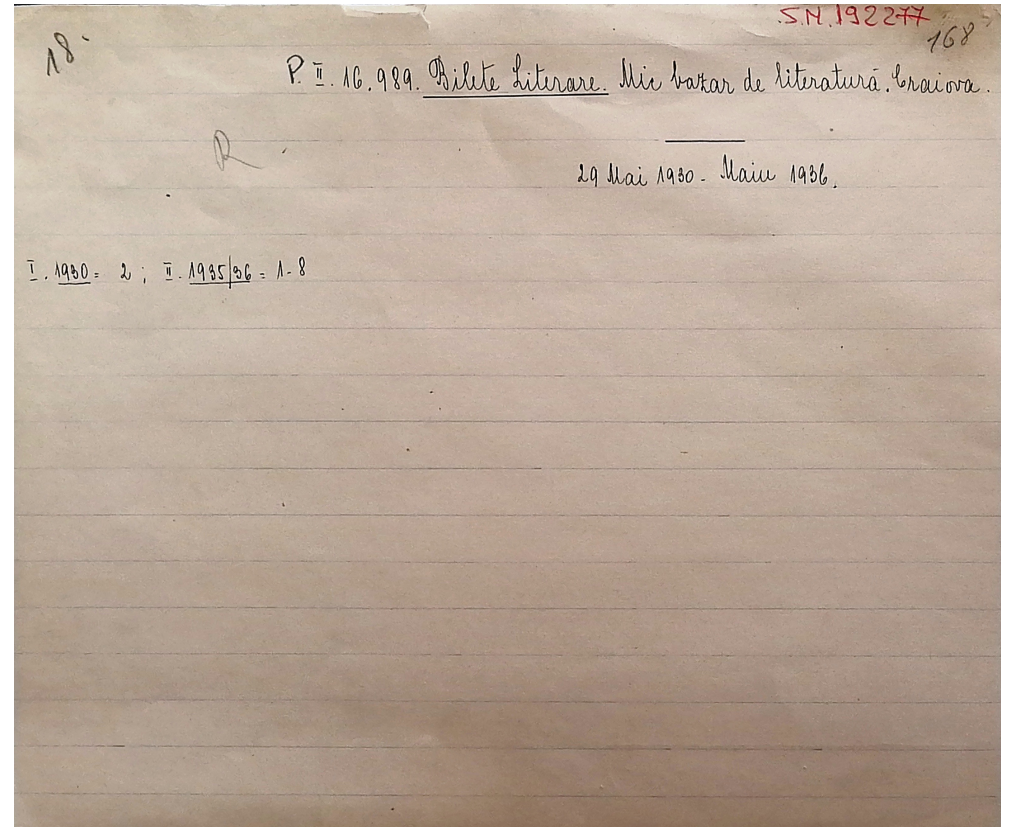 S.N. 192277
18.
168
P. II. 16.989. Bilete Literare. Mic bazar de literatură. Craiova.
R
29 Mai 1930 - Maiu 1936.
I. 1930 = 2; II. 1935/36 = 1-8